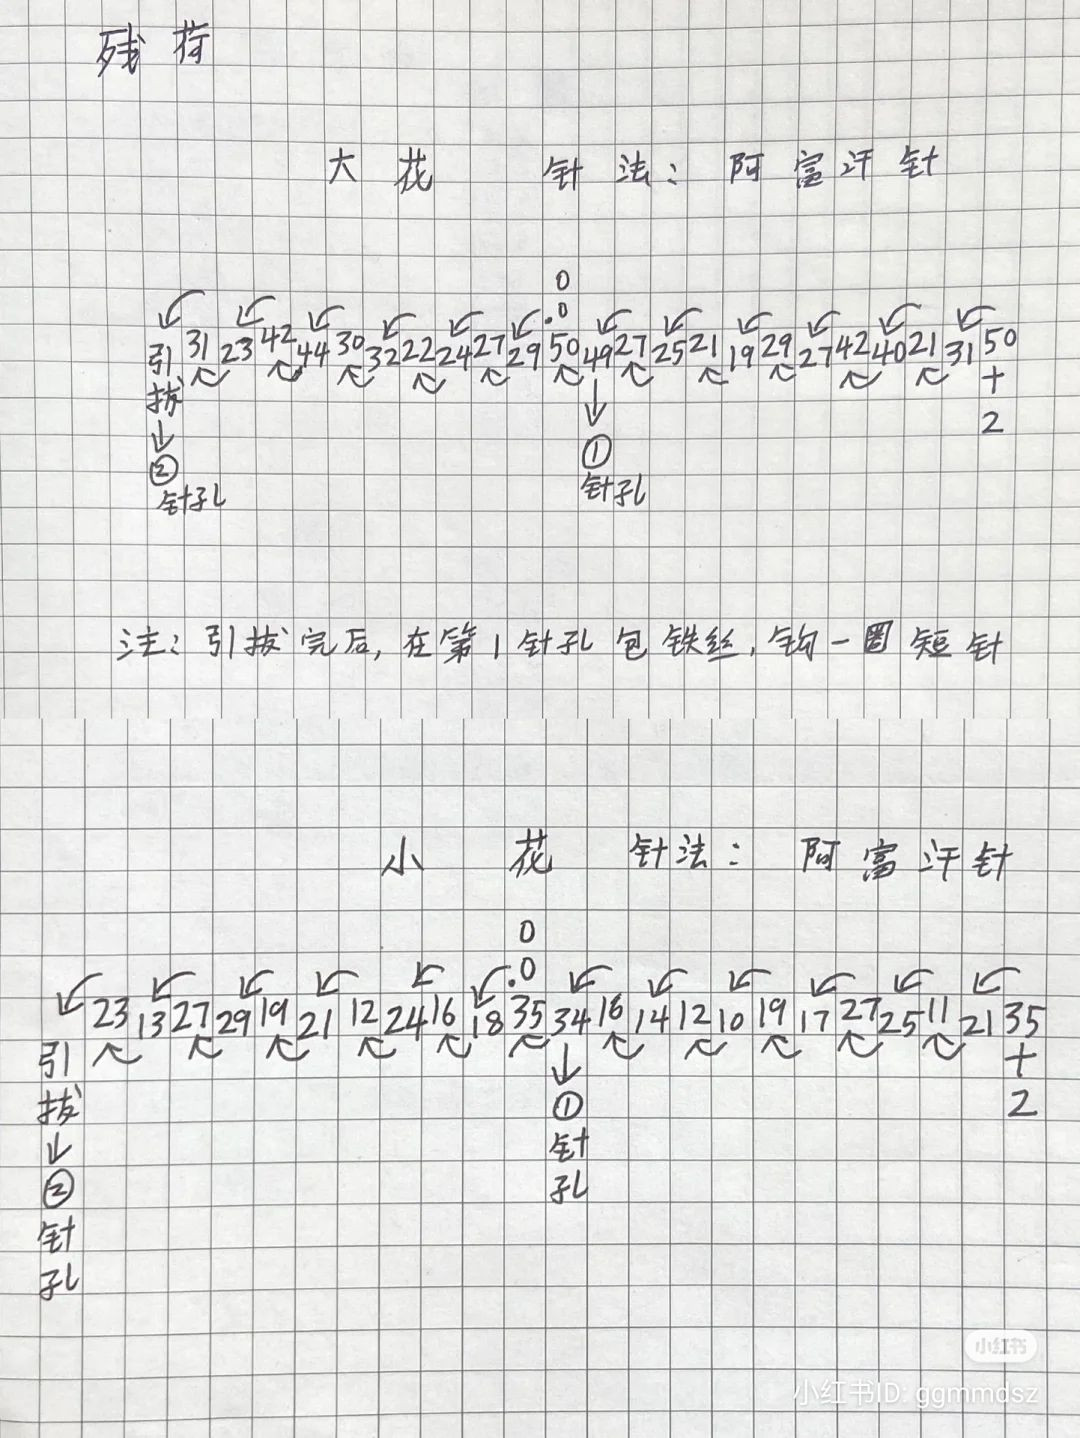 残荷
大花 针法：阿富汗针
0
0
引 31 23 42 44 30 32 22 24 27 29 50 49 27 25 21 19 29 27 42 40 21 31 50
拔 ↓ +
↓ ① 2
② 针孔
针孔
注：引拔完后，在第1针孔包铁丝，钩一圈短针
小花 针法：阿富汗针
0
0
23 13 27 29 19 21 12 24 16 18 35 34 16 14 12 10 19 17 27 25 11 21 35
引 ↓ +
拔 ① 2
↓ 针
② 孔
针
孔
小红书
小红书ID: ggmmdsz